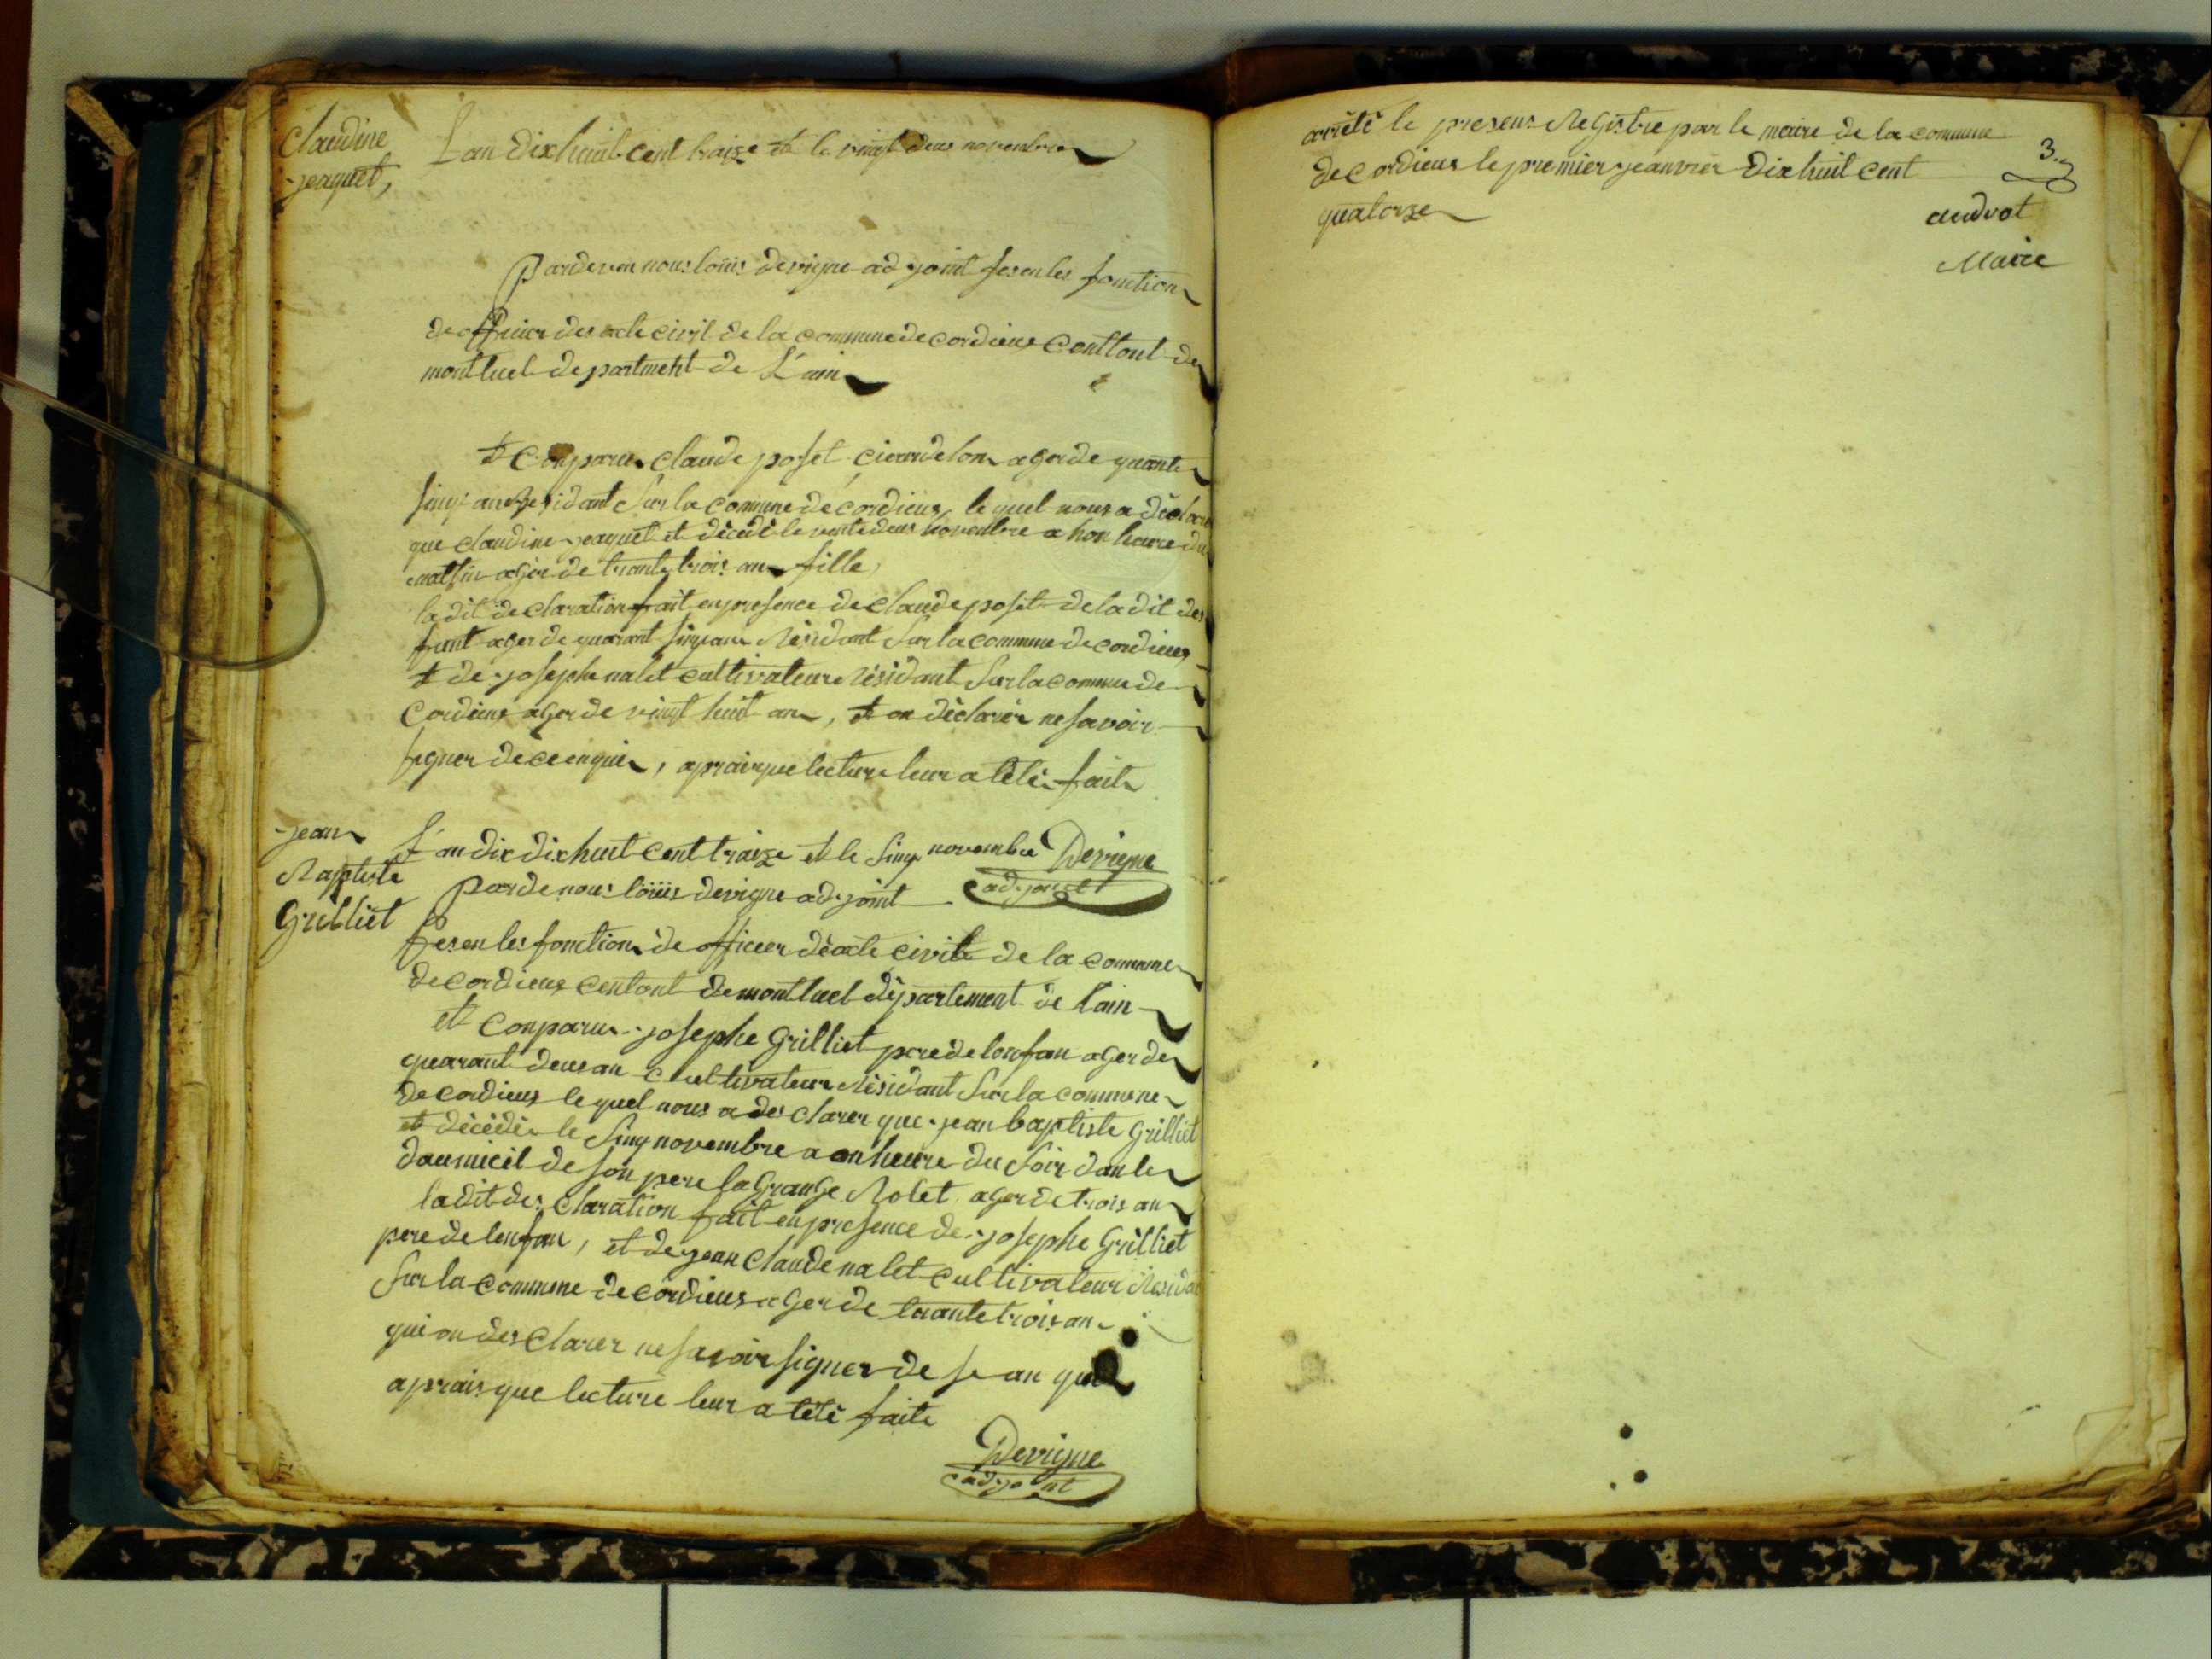 claudine
jeaquet,
L'an dix huit cent traize et le vingt deus novembre
Pardevan nous loüis devigne adjoint fesen les fonction
de officier des acte civil de la commune de cordieus Centtont de
montluel departmeht de L'ain
et conparu claude poset agerde quarante
sinq an Residant Sur la comune de cordieus, le quel nous a dèclare
que claudine jeaquet et dècedè le vente deus novembre a hon heure du
mattin ager de trante trois an fille,
la dit declaration fait en presence de claude poset de la dit des
funt ager de quarant sinq an Résidant Sur la commune de cordieus
et de josephe nalet cultivateur Résidant Sur la commu de
Cordieus ager de vingt huit an, et on dèclarèr ne savoir
signer de ce enquir, apraisque lecture leur a tété faite
jean
Baptiste
Grilliet
L'an dix dixhuit cent traize et le sinq novembre Devigne
Parde nous loüis devigne adjoint adjoint
fesen les fonction de officier dè acte civile de la commune
de cordieus centont de montluel département de l'ain
et conparu josephe Grilliet pere de lonfan ager de
quarant deus an Cultivateur Résidant Sur la commune
de cordieus le quel nous a des clarer que jean baptiste Grilliet
et dècèdèr le sinq novembre a on heure du soir dan le
daumicil de son pere la Grange Rolet ager de trois an
la dit des claration fait en presence de josephe Grilliet
pere de lonfan, et de jean claude nalet cultivateur Résida
Sur la commune de cordieus ager de trante trois an
qui on des clarer ne savoir signer de se an qui
aprais que lecture leur a tété faite
Devigne
adjoint
arrêtè le presens Registre par le maire de la commune
de cordieus le premier jeanvier dix huit cent
quatorze
3.
audrat
Maire